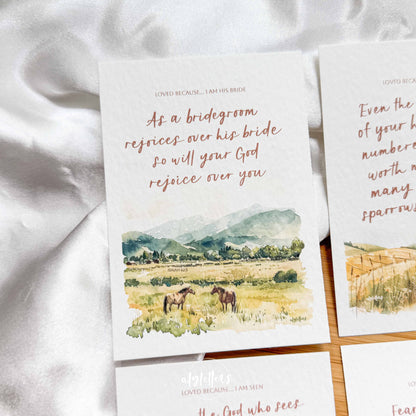 LOVED BECAUSE... I AM HIS BRIDE
As a bridegroom
rejoices over his bride
so will your God
rejoice over you
ISAIAH 62:5
LOVED BECAUSE...
Even the
of your h
numbere
worth m
many
sparrows
alyletters
LOVED BECAUSE... I AM SEEN
the God who sees
LOVED BECAUSE...
Fear